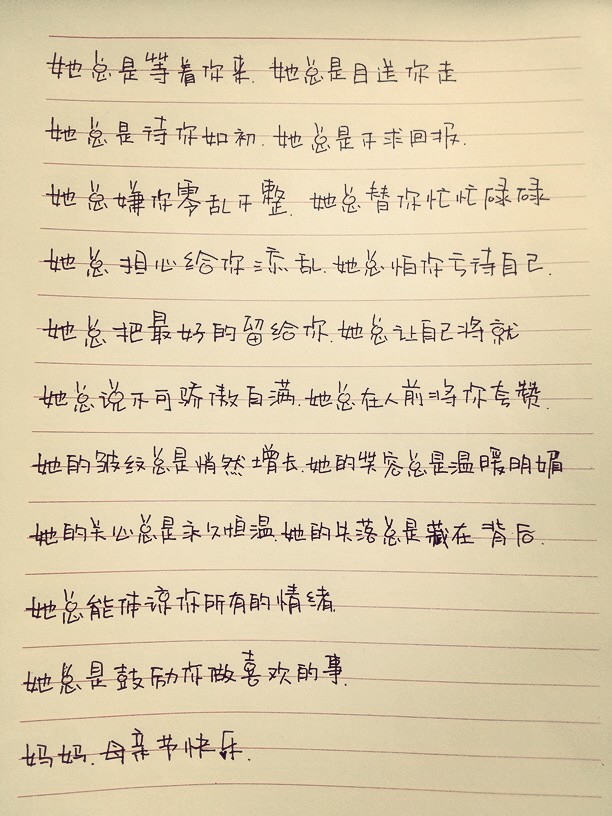 她总是等着你来.她总是目送你走
她总是待你如初.她总是不求回报.
她总嫌你零乱不整.她总替你忙忙碌碌
她总担心给你添乱.她总怕你亏待自己.
她总把最好的留给你.她总让自己将就
她总说不可骄傲自满.她总在人前将你夸赞.
她的皱纹总是悄然增长.她的笑容总是温暖明媚
她的关心总是永久恒温.她的失落总是藏在背后.
她总能体谅你所有的情绪.
她总是鼓励你做喜欢的事.
妈妈.母亲节快乐.